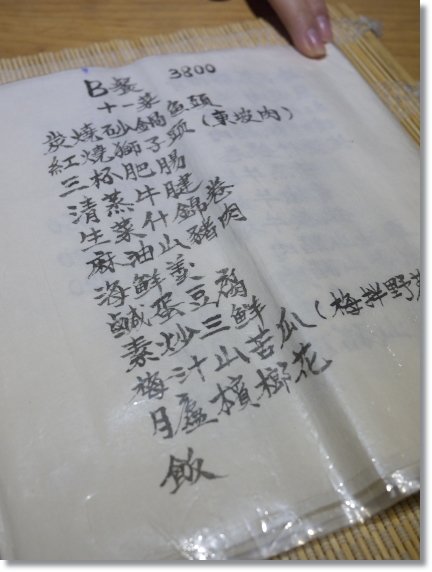 B餐 3800
十一菜
炭燒砂鍋魚頭
紅燒獅子頭(東坡肉)
三杯肥腸
清蒸牛腱
生菜什錦卷
麻油山豬肉
海鮮羹
鹹蛋豆腐
素炒三鮮
梅汁山苦瓜(梅拌野
月盧檳榔花
飯